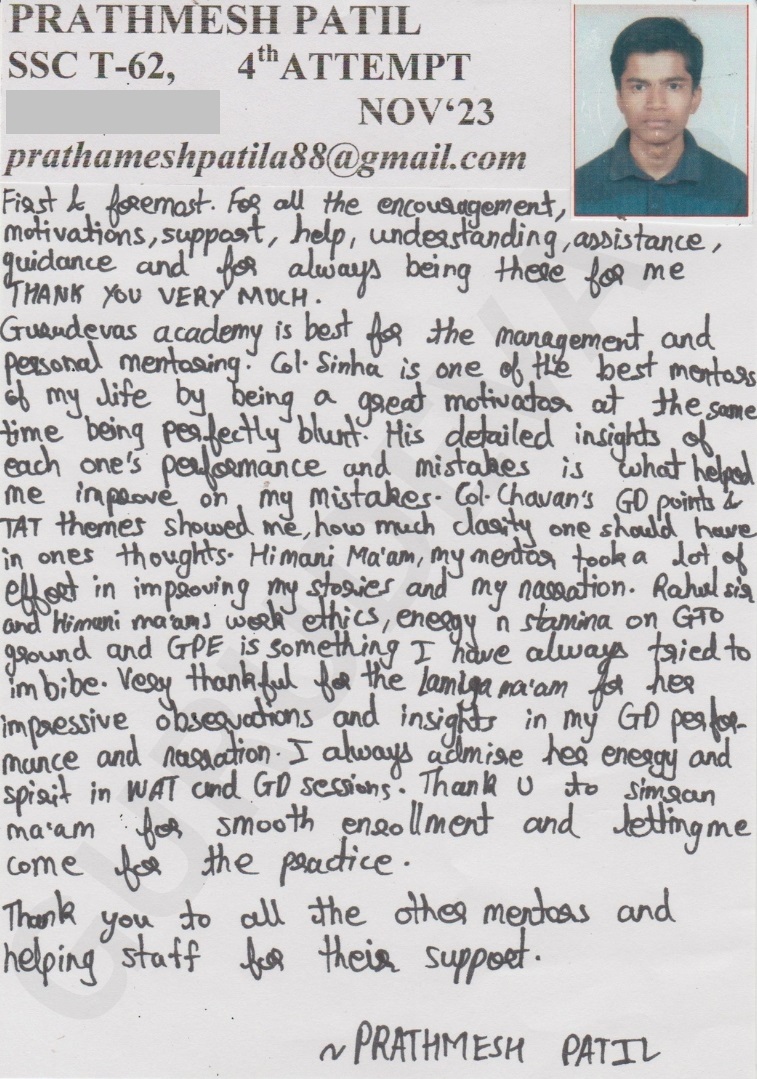 PRATHMESH PATIL
SSC T-62, 4th ATTEMPT
NOV‘23
prathameshpatila88@gmail.com
First & foremost. For all the encouragement,
motivations, support, help, understanding, assistance,
guidance and for always being there for me
THANK YOU VERY MUCH.
Gurudevas academy is best for the management and
personal mentoring. Col. Sinha is one of the best mentors
of my life by being a great motivator at the same
time being perfectly blunt. His detailed insights of
each one's performance and mistakes is what helped
me improve on my mistakes. Col. Chavan's GD points &
TAT themes showed me, how much clarity one should have
in ones thoughts. Himani Ma'am, my mentor took a lot of
effort in improving my stories and my narration. Rahul sir
and Himani ma'ams work ethics, energy n stamina on GTO
ground and GPE is something I have always tried to
imbibe. Very thankful for the Lamiya ma'am for her
impressive observations and insights in my GD perfor-
mance and narration. I always admire her energy and
spirit in WAT and GD sessions. Thank U to simran
ma'am for smooth enrollment and letting me
come for the practice.
Thank you to all the other mentors and
helping staff for their support.
~ PRATHMESH PATIL
GURUDEVA